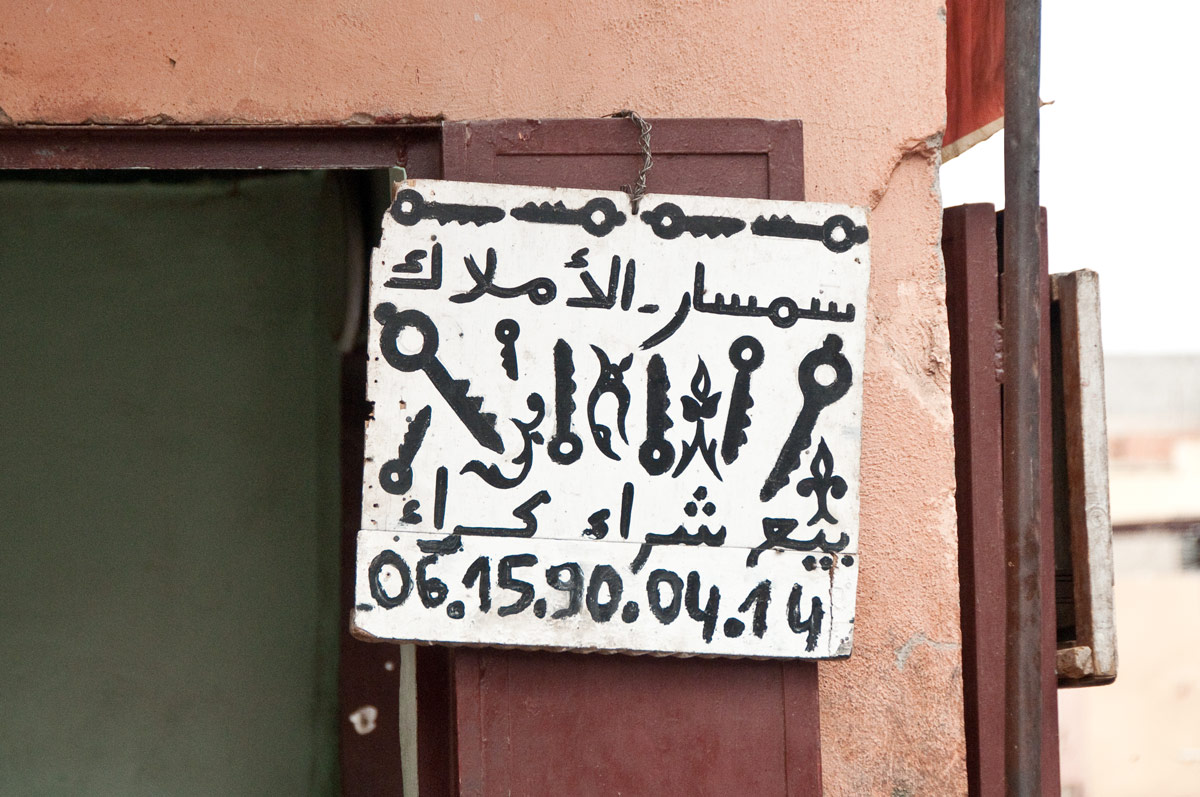 سمسار - الأملاك
بيع شراء كراء
06.15.90.04.14